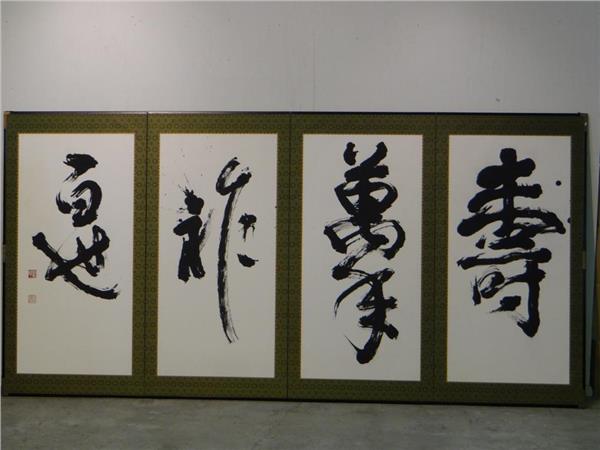 壽
萬年
祚
百世